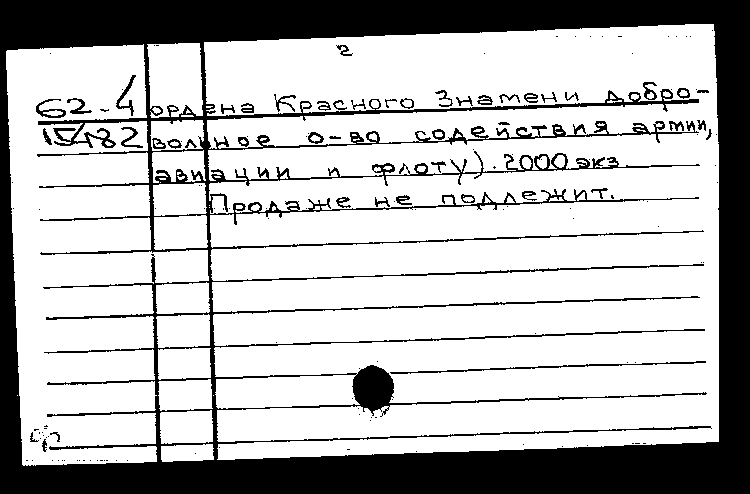 2
62-4 ордена Красного Знамени добро-
15482 вольное о-во содействия армии,
авиации и флоту). 2000 экз.
Продаже не подлежит.